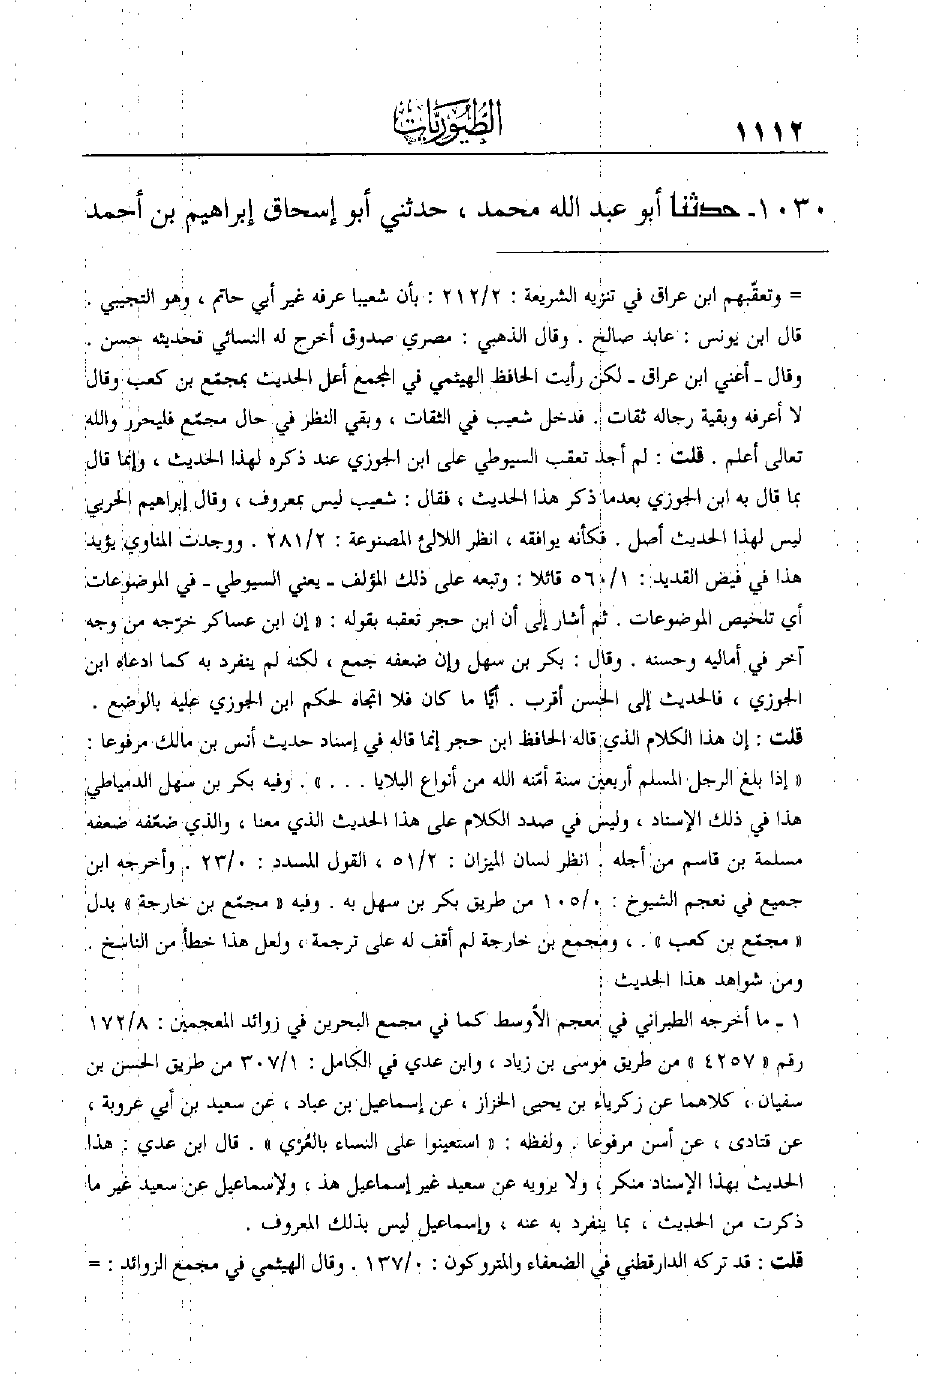 ١١١٢
الطُّيُوريَّات
١٠٣٠ـ حدثنا أبو عبد الله محمد ، حدثني أبو إسحاق إبراهيم بن أحمد
= وتعقّبهم ابن عراق في تنزيه الشريعة : ٢١٢/٢ : بأن شعيبا عرفه غير أبي حاتم ، وهو التجيبي .
قال ابن يونس : عابد صالح . وقال الذهبي : مصري صدوق أخرج له النسائي فحديثه حسن .
وقال ـ أعني ابن عراق ـ لكن رأيت الحافظ الهيثمي في المجمع أعل الحديث بمجمّع بن كعب وقال
لا أعرفه وبقية رجاله ثقات . فدخل شعيب في الثقات ، وبقي النظر في حال مجمّع فليحرر والله
تعالى أعلم . قلت : لم أجد تعقب السيوطي على ابن الجوزي عند ذكره لهذا الحديث ، وإنما قال
بما قال به ابن الجوزي بعدما ذكر هذا الحديث ، فقال : شعيب ليس بمعروف ، وقال إبراهيم الحربي
ليس لهذا الحديث أصل . فكأنه يوافقه ، انظر اللالئ المصنوعة : ٢٨١/٢ . ووجدت المناوي يؤيد
هذا في فيض القديد : ٥٦٠/١ قائلا : وتبعه على ذلك المؤلف ـ يعني السيوطي ـ في الموضوعات
أي تلخيص الموضوعات . ثم أشار إلى أن ابن حجر تعقبه بقوله : « إن ابن عساكر خرّجه من وجه
آخر في أماليه وحسنه . وقال : بكر بن سهل وإن ضعفه جمع ، لكنه لم ينفرد به كما ادعاه ابن
الجوزي ، فالحديث إلى الحسن أقرب . أيًّا ما كان فلا اتجاه لحكم ابن الجوزي عليه بالوضع .
قلت : إن هذا الكلام الذي قاله الحافظ ابن حجر إنما قاله في إسناد حديث أنس بن مالك مرفوعا :
« إذا بلغ الرجل المسلم أربعين سنة أمّنه الله من أنواع البلايا . . . » . وفيه بكر بن سهل الدمياطي
هذا في ذلك الإسناد ، وليس في صدد الكلام على هذا الحديث الذي معنا ، والذي ضعّفه ضعفه
مسلمة بن قاسم من أجله . انظر لسان الميزان : ٥١/٢ ، القول المسدد : ٢٣/٠ . وأخرجه ابن
جميع في نعجم الشيوخ : ١٠٥/٠ من طريق بكر بن سهل به . وفيه « مجمّع بن خارجة » بدل
« مجمّع بن كعب » . ، ومجمع بن خارجة لم أقف له على ترجمة ، ولعل هذا خطأ من الناسخ .
ومن شواهد هذا الحديث :
١ ـ ما أخرجه الطبراني في معجم الأوسط كما في مجمع البحرين في زوائد المعجمين : ١٧٢/٨
رقم « ٤٢٥٧ » من طريق موسى بن زياد ، وابن عدي في الكامل : ٣٠٧/١ من طريق الحسن بن
سفيان ، كلاهما عن زكرياء بن يحيى الخزاز ، عن إسماعيل بن عباد ، عن سعيد بن أبي عروبة ،
عن قتادى ، عن أسن مرفوعا . ولفظه : « استعينوا على النساء بالعُرْي » . قال ابن عدي : هذا
الحديث بهذا الإسناد منكر ، ولا يرويه عن سعيد غير إسماعيل هذ ، ولإسماعيل عن سعيد غير ما
ذكرت من الحديث ، بما ينفرد به عنه ، وإسماعيل ليس بذلك المعروف .
قلت : قد تركه الدارقطني في الضعفاء والمتروكون : ١٣٧/٠ . وقال الهيثمي في مجمع الزوائد : =